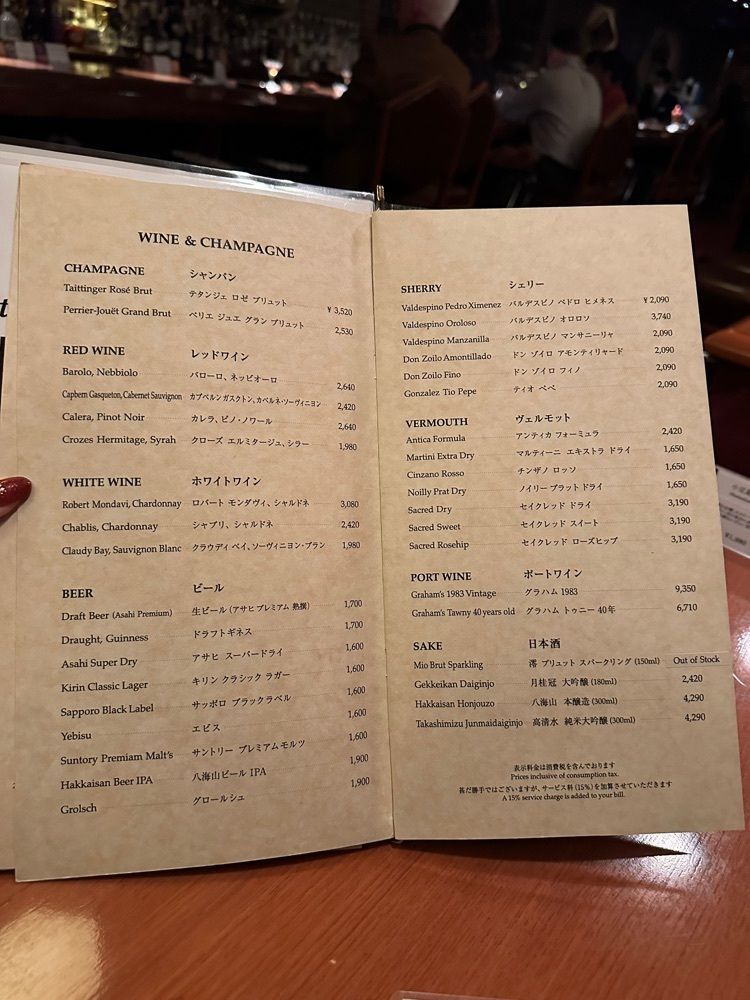 WINE & CHAMPAGNE
CHAMPAGNE シャンパン
Taittinger Rosé Brut テタンジェ ロゼ ブリュット ¥ 3,520
Perrier-Jouët Grand Brut ペリエ ジュエ グラン ブリュット 2,530
RED WINE レッドワイン
Barolo, Nebbiolo バローロ、ネッビオーロ 2,640
Caphern Gasqueton, Cabernet Sauvignon カプベルン ガスクトン、カベルネ・ソーヴィニヨン 2,420
Calera, Pinot Noir カレラ、ピノ・ノワール 2,640
Crozes Hermitage, Syrah クローズ エルミタージュ、シラー 1,980
WHITE WINE ホワイトワイン
Robert Mondavi, Chardonnay ロバート モンダヴィ、シャルドネ 3,080
Chablis, Chardonnay シャブリ、シャルドネ 2,420
Claudy Bay, Sauvignon Blanc クラウディ ベイ、ソーヴィニヨン・ブラン 1,980
BEER ビール
Draft Beer (Asahi Premium) 生ビール (アサヒ プレミアム 熟撰) 1,700
Draught, Guinness ドラフトギネス 1,700
Asahi Super Dry アサヒ スーパードライ 1,600
Kirin Classic Lager キリン クラシック ラガー 1,600
Sapporo Black Label サッポロ ブラックラベル 1,600
Yebisu エビス 1,600
Suntory Premiam Malt's サントリー プレミアムモルツ 1,600
Hakkaisan Beer IPA 八海山ビール IPA 1,900
Grolsch グロールシュ 1,900
SHERRY シェリー
Valdespino Pedro Ximenez バルデスピノ ペドロ ヒメネス ¥ 2,090
Valdespino Oroloso バルデスピノ オロロソ 3,740
Valdespino Manzanilla バルデスピノ マンサニーリャ 2,090
Don Zoilo Amontillado ドン ゾイロ アモンティリャード 2,090
Don Zoilo Fino ドン ゾイロ フィノ 2,090
Gonzalez Tio Pepe ティオ ペペ 2,090
VERMOUTH ヴェルモット
Antica Formula アンティカ フォーミュラ 2,420
Martini Extra Dry マルティーニ エキストラ ドライ 1,650
Cinzano Rosso チンザノ ロッソ 1,650
Noilly Prat Dry ノイリー プラット ドライ 1,650
Sacred Dry セイクレッド ドライ 3,190
Sacred Sweet セイクレッド スイート 3,190
Sacred Rosehip セイクレッド ローズヒップ 3,190
PORT WINE ポートワイン
Graham's 1983 Vintage グラハム 1983 9,350
Graham's Tawny 40 years old グラハム トゥニー 40年 6,710
SAKE 日本酒
Mio Brut Sparkling 澪 ブリュット スパークリング (150ml) Out of Stock
Gekkeikan Daiginjo 月桂冠 大吟醸 (180ml) 2,420
Hakkaisan Honjouzo 八海山 本醸造 (300ml) 4,290
Takashimizu Junmaidaiginjo 高清水 純米大吟醸 (300ml) 4,290
表示料金は消費税を含んでおります
Prices inclusive of consumption tax.
甚だ勝手ではございますが、サービス料 (15%) を加算させていただきます
A 15% service charge is added to your bill.